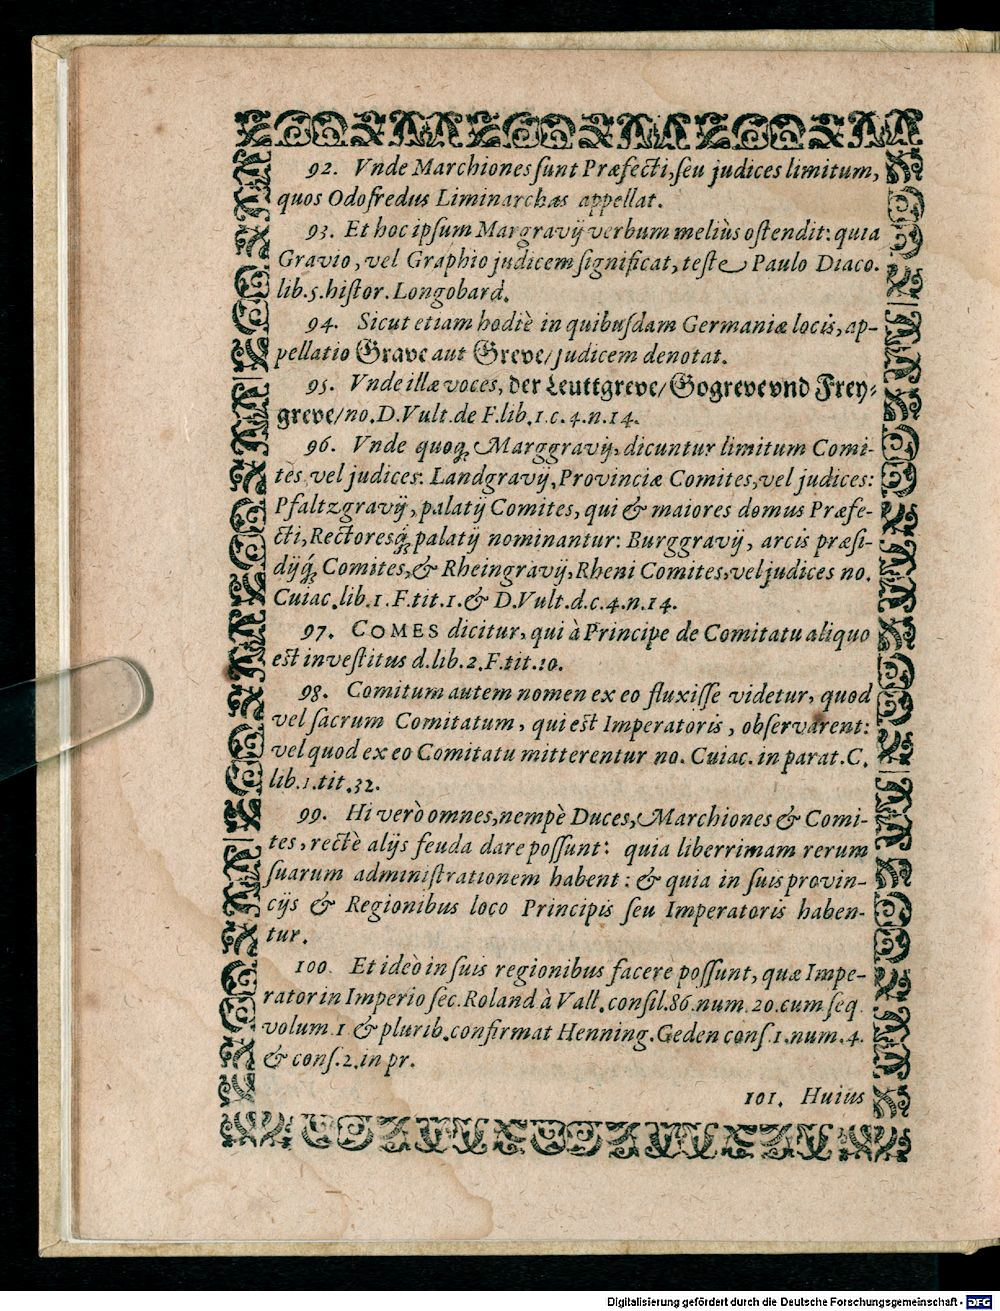 92. Vnde Marchiones ſunt Præfecti, ſeu judices limitum,
quos Odofredus Liminarchas appellat.
93. Et hoc ipſum Margravij verbum meliùs oſtendit: quia
Gravio, vel Graphio judicem ſignificat, teſte Paulo Diaco.
lib.5.hiſtor. Longobard.
94. Sicut etiam hodiè in quibuſdam Germaniæ locis, ap-
pellatio Grave aut Greve/ judicem denotat.
95. Vnde illæ voces, der Leuttgreve/ Gogreve vnd Frey-
greve/ no. D. Vult. de F. lib. 1. c. 4. n. 14.
96. Vnde quoq; Marggravij, dicuntur limitum Comi-
tes vel judices: Landgravij, Provinciæ Comites, vel judices:
Pfaltzgravij, palatij Comites, qui & maiores domus Præfe-
cti, Rectoresq́; palatij nominantur: Burggravij, arcis præſi-
dijq́; Comites, & Rheingravij, Rheni Comites, vel judices no.
Cuiac. lib. 1. F. tit. 1. & D. Vult. d. c. 4. n. 14.
97. COMES dicitur, qui à Principe de Comitatu aliquo
eſt inveſtitus d. lib. 2. F. tit. 10.
98. Comitum autem nomen ex eo fluxiſſe videtur, quod
vel ſacrum Comitatum, qui eſt Imperatoris, obſervarent:
vel quod ex eo Comitatu mitterentur no. Cuiac. in parat. C.
lib. 1. tit. 32.
99. Hi verò omnes, nempè Duces, Marchiones & Comi-
tes, rectè alijs feuda dare poſſunt: quia liberrimam rerum
ſuarum adminiſtrationem habent: & quia in ſuis provin-
cijs & Regionibus loco Principis ſeu Imperatoris haben-
tur.
100. Et ideò in ſuis regionibus facere poſſunt, quæ Impe-
rator in Imperio ſec. Roland à Vall. conſil. 86. num. 20. cum ſeq.
volum. 1 & plurib. confirmat Henning. Geden conſ. 1. num. 4.
& conſ. 2. in pr.
101. Huius
Digitalisierung gefördert durch die Deutsche Forschungsgemeinschaft - DFG